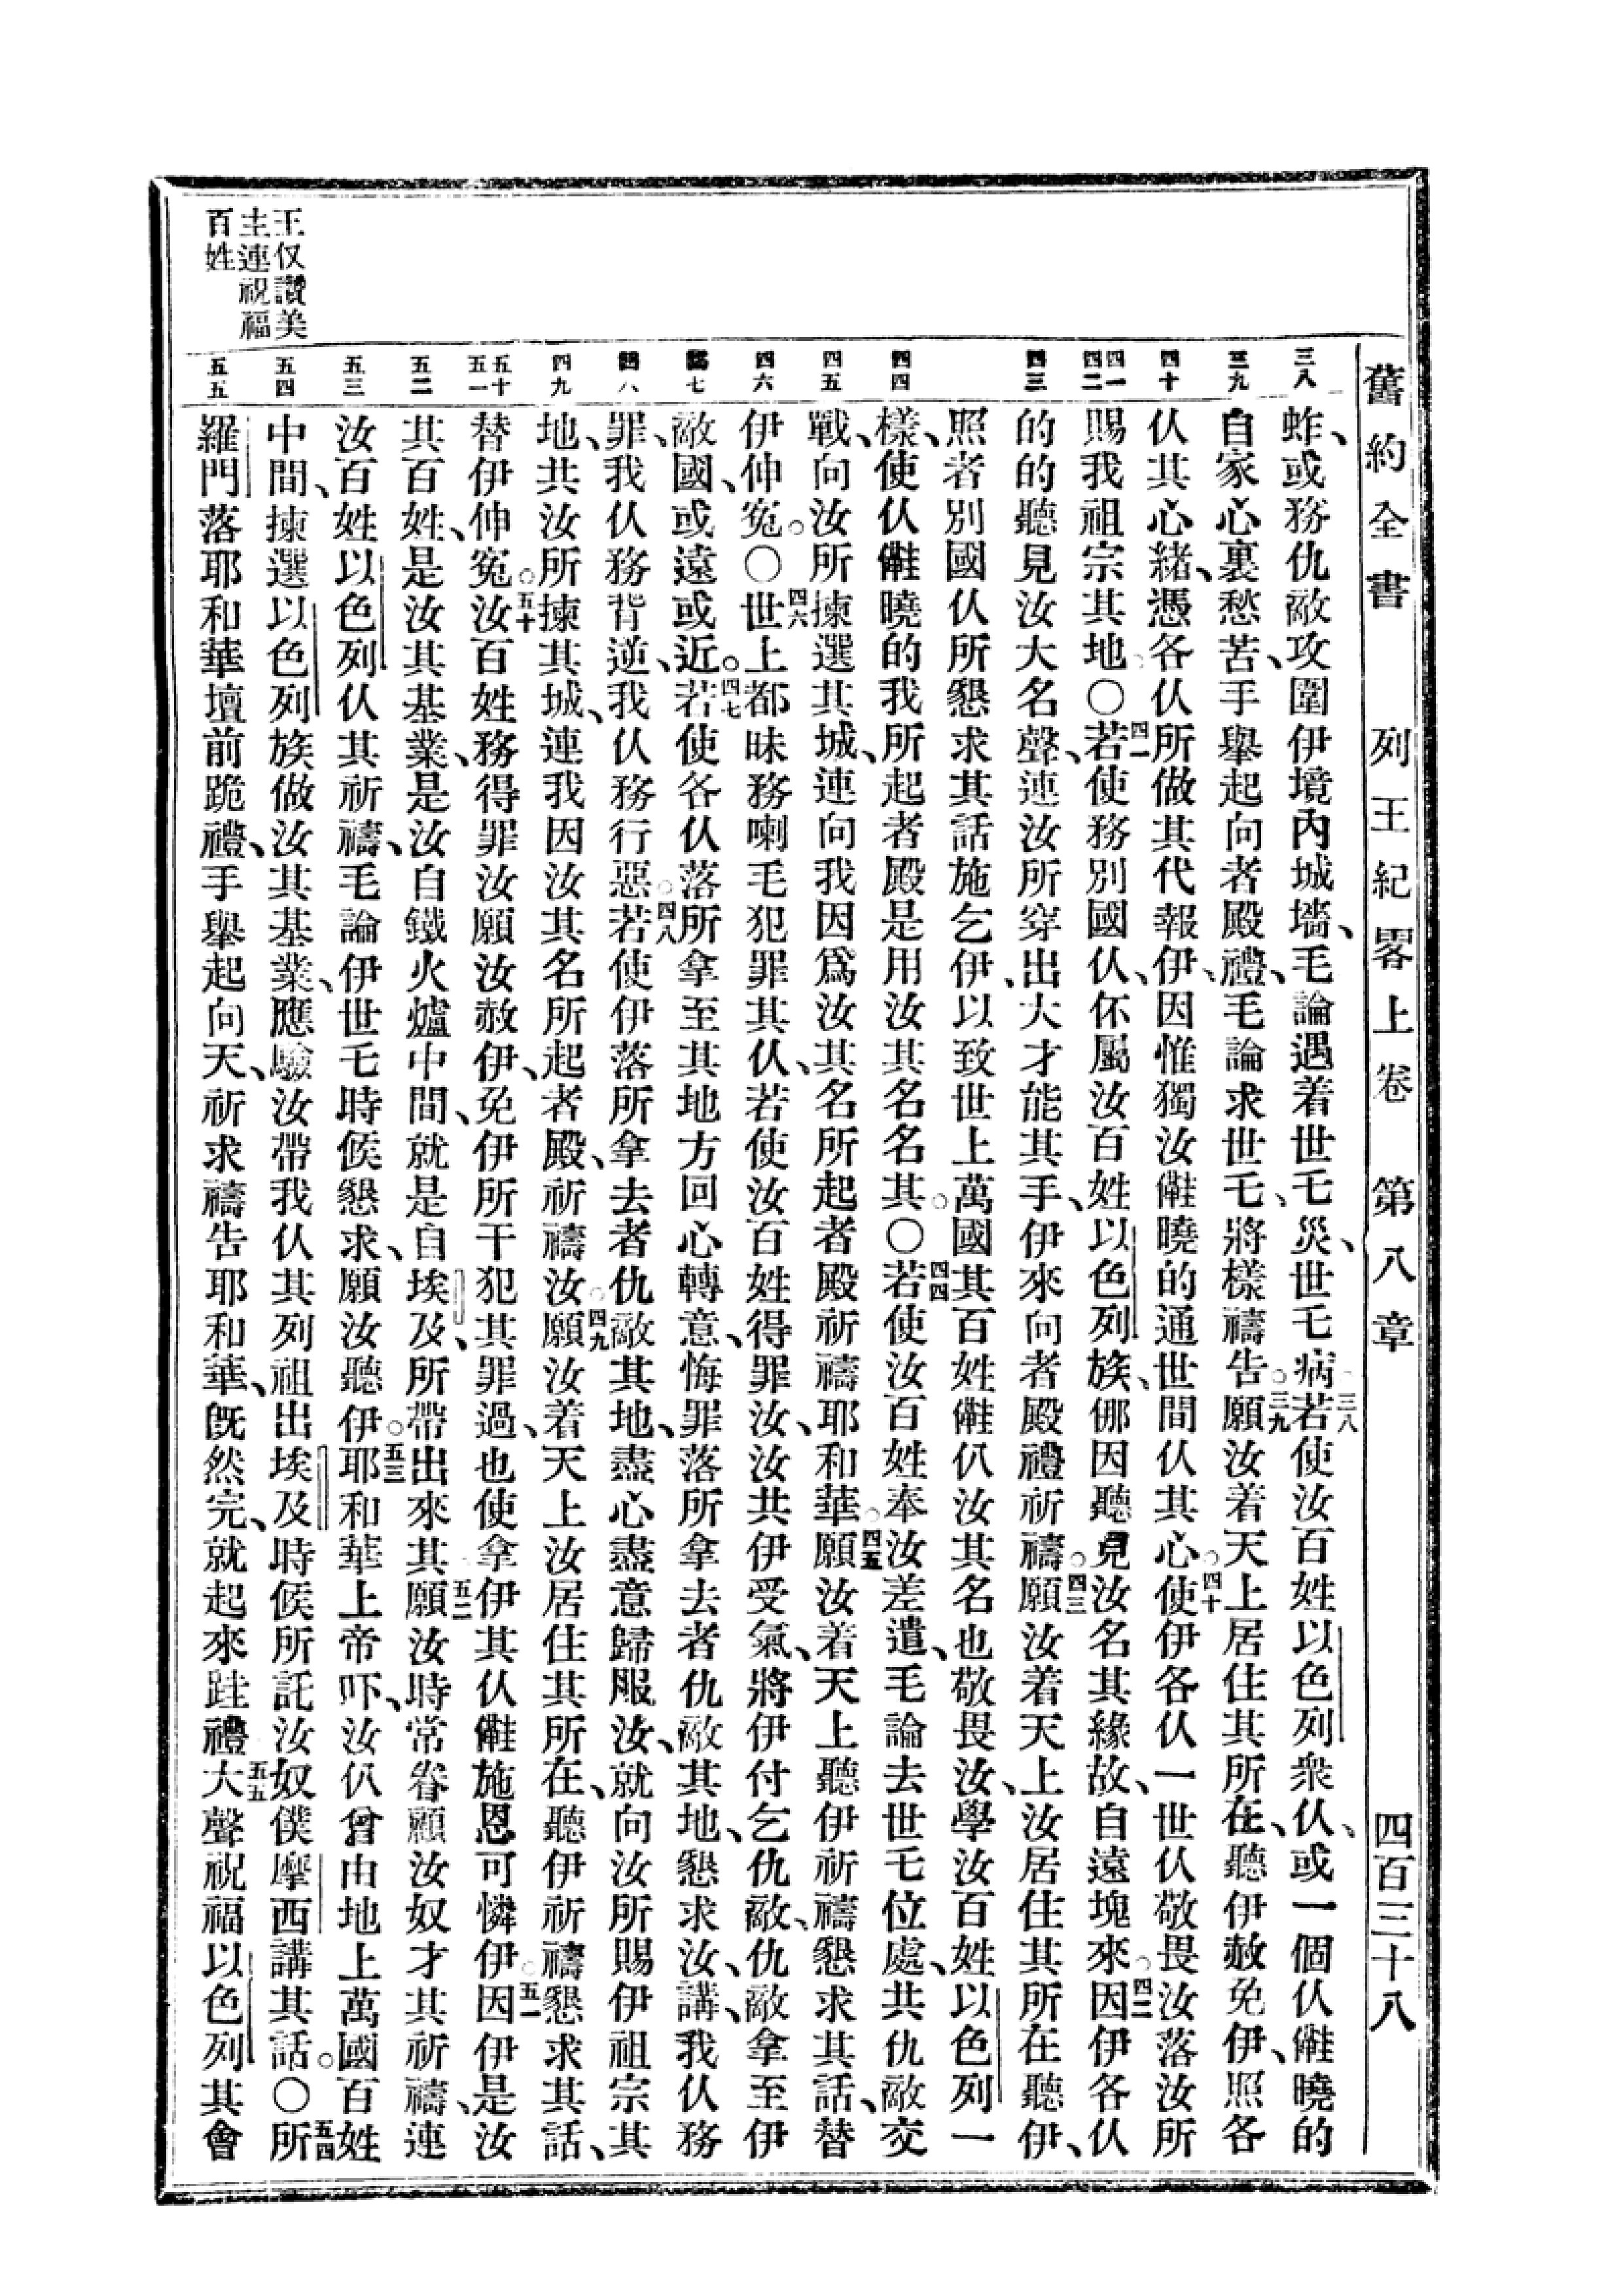 舊約全書 列王紀畧上卷 第八章 四百三十八
三八
蚱、或務仇敵攻圍伊境內城墻、毛論遇着世乇災、世乇病、三八若使汝百姓以色列衆仈、或一個仈𣍐曉的
三九
自家心裏愁苦、手舉起向者殿禮、毛論求世乇、將樣禱告。三九願汝着天上居住其所在、聽伊赦免伊、照各
四十
仈其心緒、憑各仈所做其代報伊、因惟獨汝𣍐曉的通世間仈其心。四十使伊各仈一世仈敬畏汝落汝所
四一 四二
賜我祖宗其地。〇四一若使務別國仈、伓屬汝百姓以色列族、㑚因聽見汝名其緣故、自遠塊來。四二因伊各仈
四三
的的聽見汝大名聲、連汝所穿出大才能其手、伊來向者殿禮祈禱。四三願汝着天上汝居住其所在聽伊、
照者別國仈所懇求其話施乞伊、以致世上萬國其百姓𣍐仈汝其名也敬畏汝、學汝百姓以色列一
四四
樣、使仈𣍐曉的我所起者殿是用汝其名名其。〇四四若使汝百姓奉汝差遣、毛論去世乇位處、共仇敵交
四五
戰、向汝所揀選其城、連向我因爲汝其名所起者殿祈禱耶和華。四五願汝着天上聽伊祈禱懇求其話、替
四六
伊伸寃。〇四六世上都昧務喇毛犯罪其仈、若使汝百姓得罪汝、汝共伊受氣、將伊付乞仇敵、仇敵拿至伊
四七
敵國、或遠或近。四七若使各仈落所拿至其地方回心轉意、悔罪落所拿去者仇敵其地、懇求汝、講、我仈務
四八
罪、我仈務背逆、我仈務行惡。四八若使伊落所拿去者仇敵其地、盡心盡意歸服汝、就向汝所賜伊祖宗其
四九
地、共汝所揀其城、連我因汝其名所起者殿、祈禱汝。四九願汝着天上汝居住其所在、聽伊祈禱懇求其話、
五十 五一
替伊伸寃。五十汝百姓務得罪汝願汝赦伊、免伊所干犯其罪過、也使拿伊其仈𣍐施恩可憐伊。五一因伊是汝
五二
其百姓、是汝其基業、是汝自鐵火爐中間、就是自埃及、所帶出來其。五二願汝時常眷顧汝奴才其祈禱、連
五三
汝百姓以色列仈其祈禱、毛論伊世乇時候懇求、願汝聽伊。五三耶和華上帝吓、汝仈曾由地上萬國百姓
五四
中間、揀選以色列族做汝其基業、應驗汝帶我仈其列祖出埃及時候所託汝奴僕摩西講其話。〇五四所
五五
羅門落耶和華壇前跪禮、手舉起向天、祈求禱告耶和華、旣然完、就起來跬禮五五大聲祝福以色列其會
王仅讚美
主連祝福
百姓